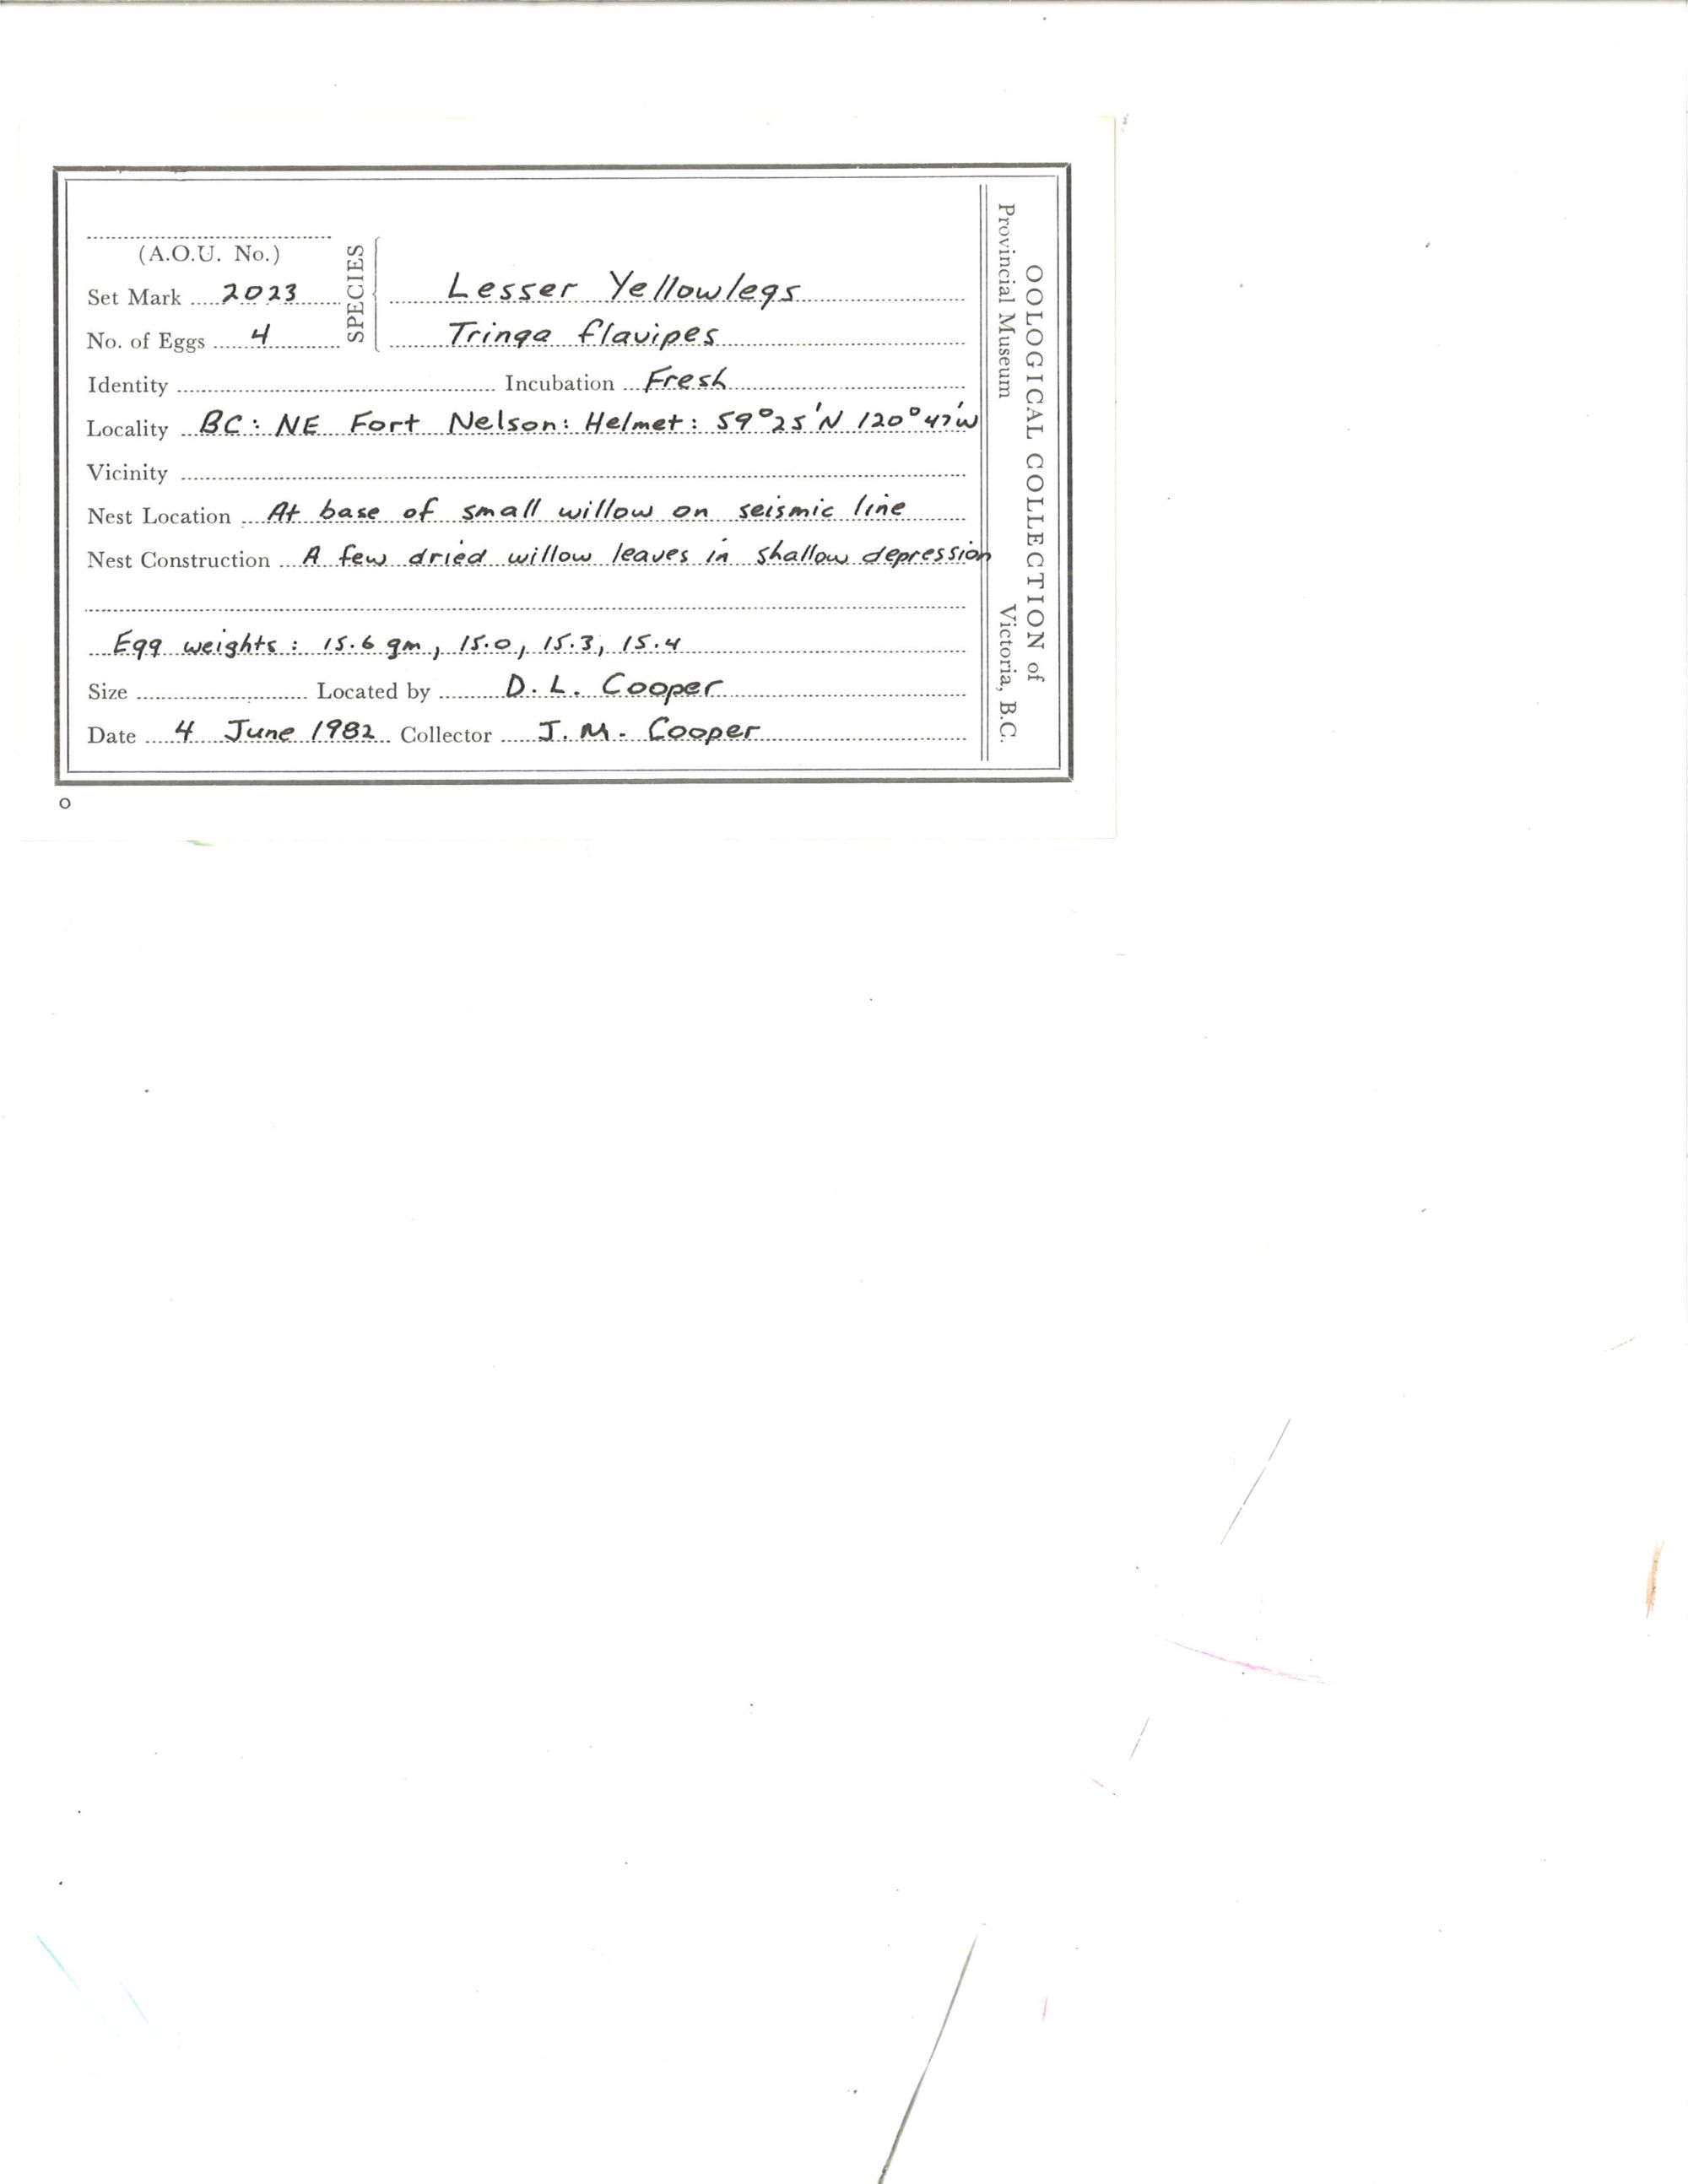 (A.O.U. No.)
Set Mark 2023
No. of Eggs 4
SPECIES
Lesser Yellowlegs
Tringa flavipes
Identity Incubation Fresh
Locality BC: NE Fort Nelson: Helmet: 59°25'N 120°47'W
Vicinity
Nest Location At base of small willow on seismic line
Nest Construction A few dried willow leaves in shallow depression
Egg weights: 15.6 gm, 15.0, 15.3, 15.4
Size Located by D. L. Cooper
Date 4 June 1982 Collector J. M. Cooper
OOLOGICAL COLLECTION of
Provincial Museum Victoria, B.C.
O